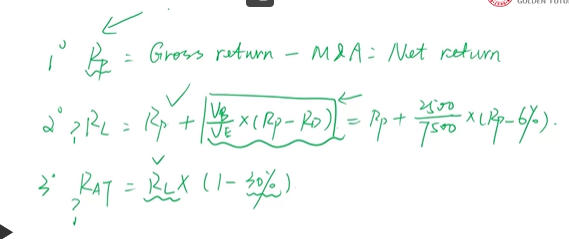 GOLDEN FUTU
1° Rp = Gross return - M&A = Net return
2° ? RL = Rp + VB/VE × (Rp - RD) = Rp + 2500/7500 × (Rp - 6%).
3° ? RAT = RL × (1 - 30%)